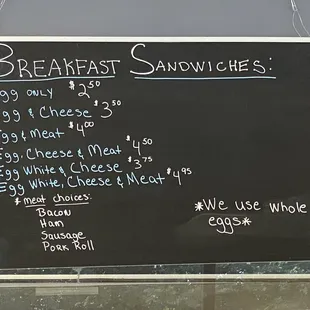 Breakfast Sandwiches:
Egg only $2.50
Egg & Cheese $3.50
Egg & Meat $4.00
Egg, Cheese & Meat $4.50
Egg White & Cheese $3.75
Egg White, Cheese & Meat $4.95
* meat choices:
Bacon
Ham
Sausage
Pork Roll
*We use whole
eggs*